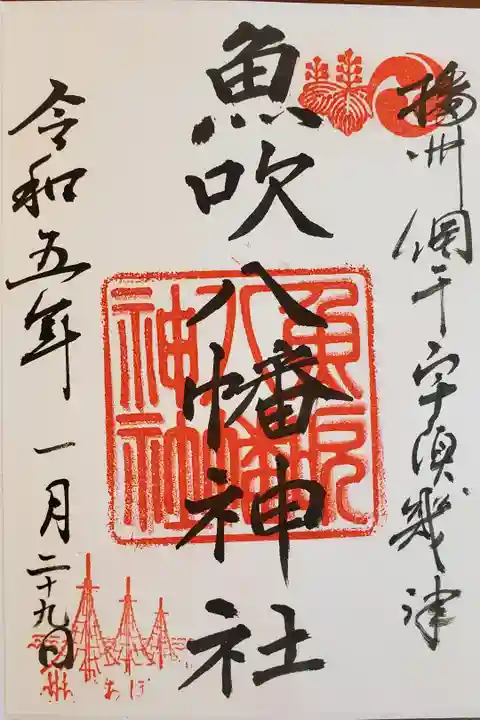 播州 網干 宇須幾津
魚吹八幡神社
魚吹
八幡
神社
令和五年 一月二十九日